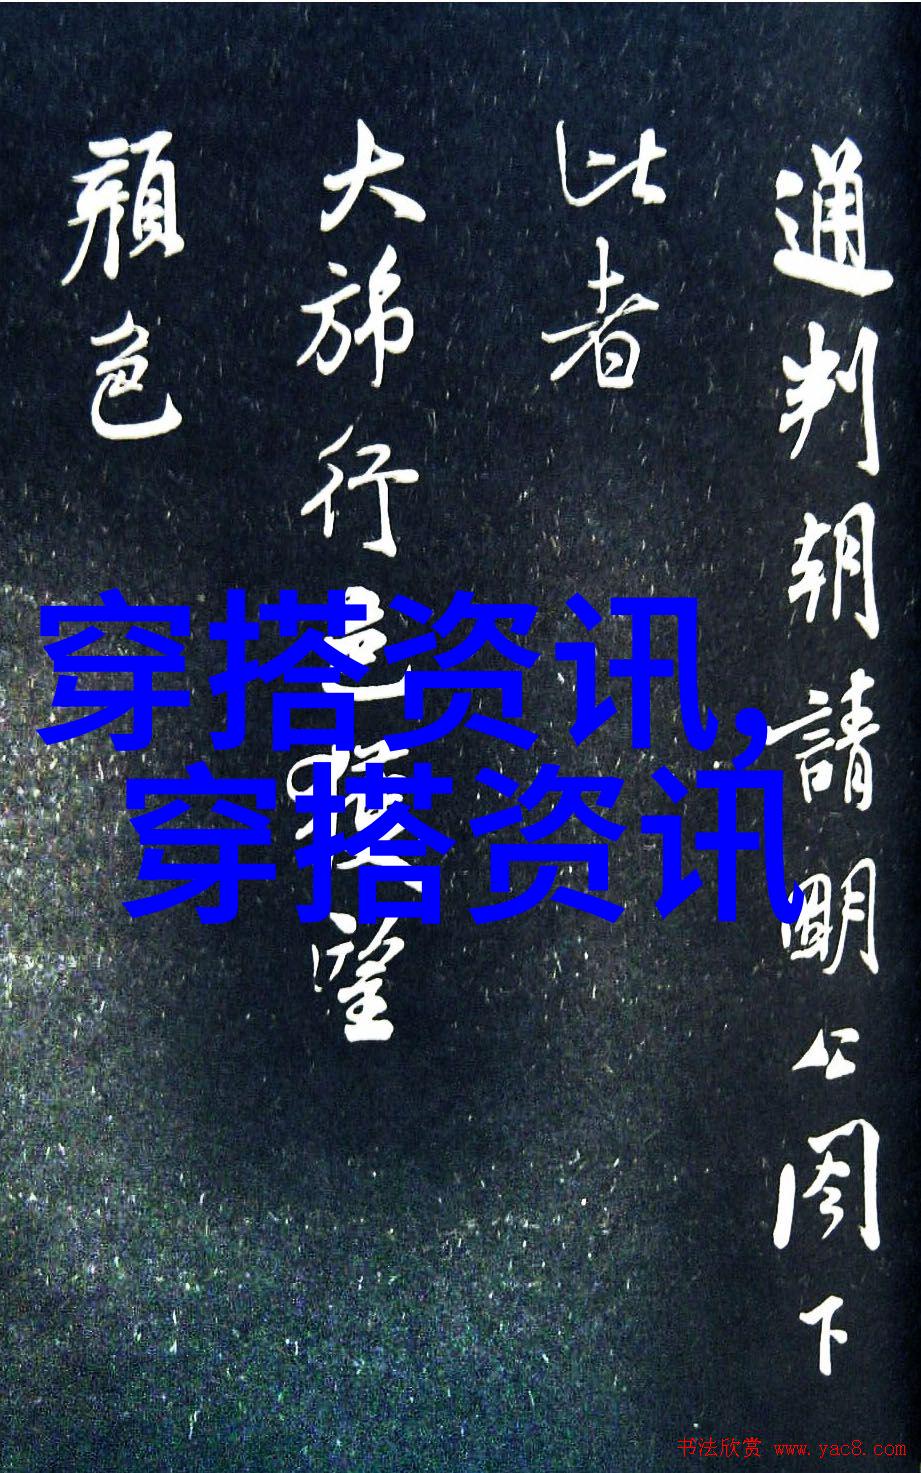 通判朝請明公閣下
此者
大旆行望
顏色
穿搭资讯,
穿搭资讯,
书法欣赏 www.yac8.com